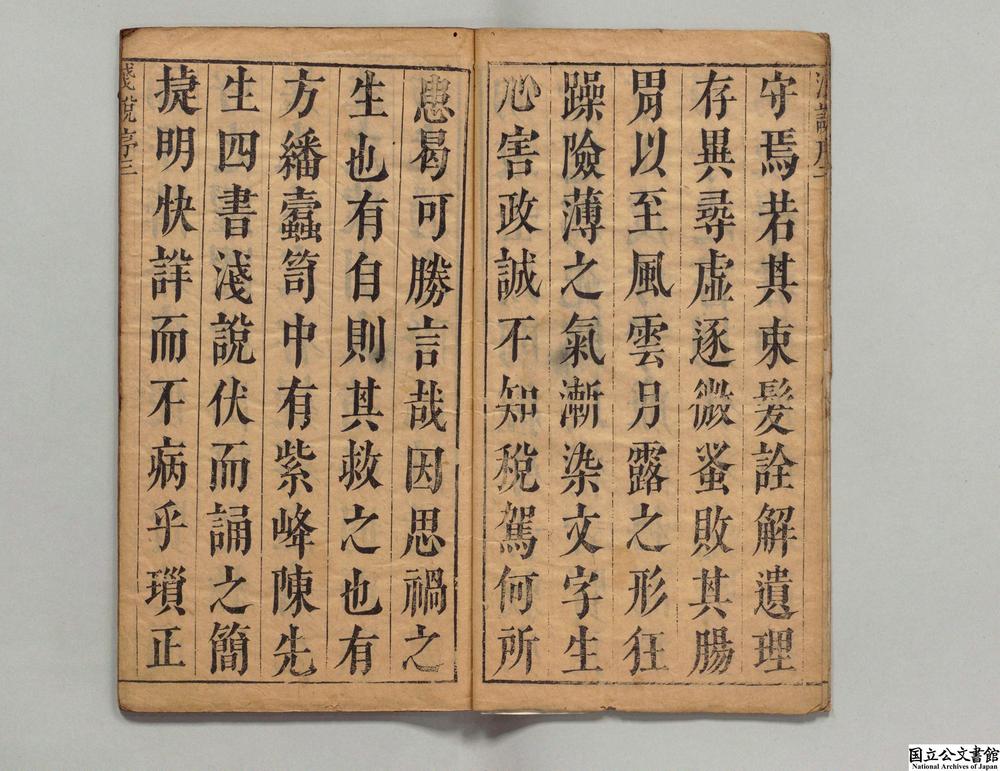 守焉若其束髮詮解遺理
存異尋虛逐微蚤敗其腸
胃以至風雲月露之形狂
躁險薄之氣漸染文字生
心害政誠不知稅駕何所
患曷可勝言哉因思禍之
生也有自則其救之也有
方繙蠧笥中有紫峰陳先
生四書淺說伏而誦之簡
㨗明快詳而不病乎瑣正
淺說序三
国立公文書館
National Archives of Japan